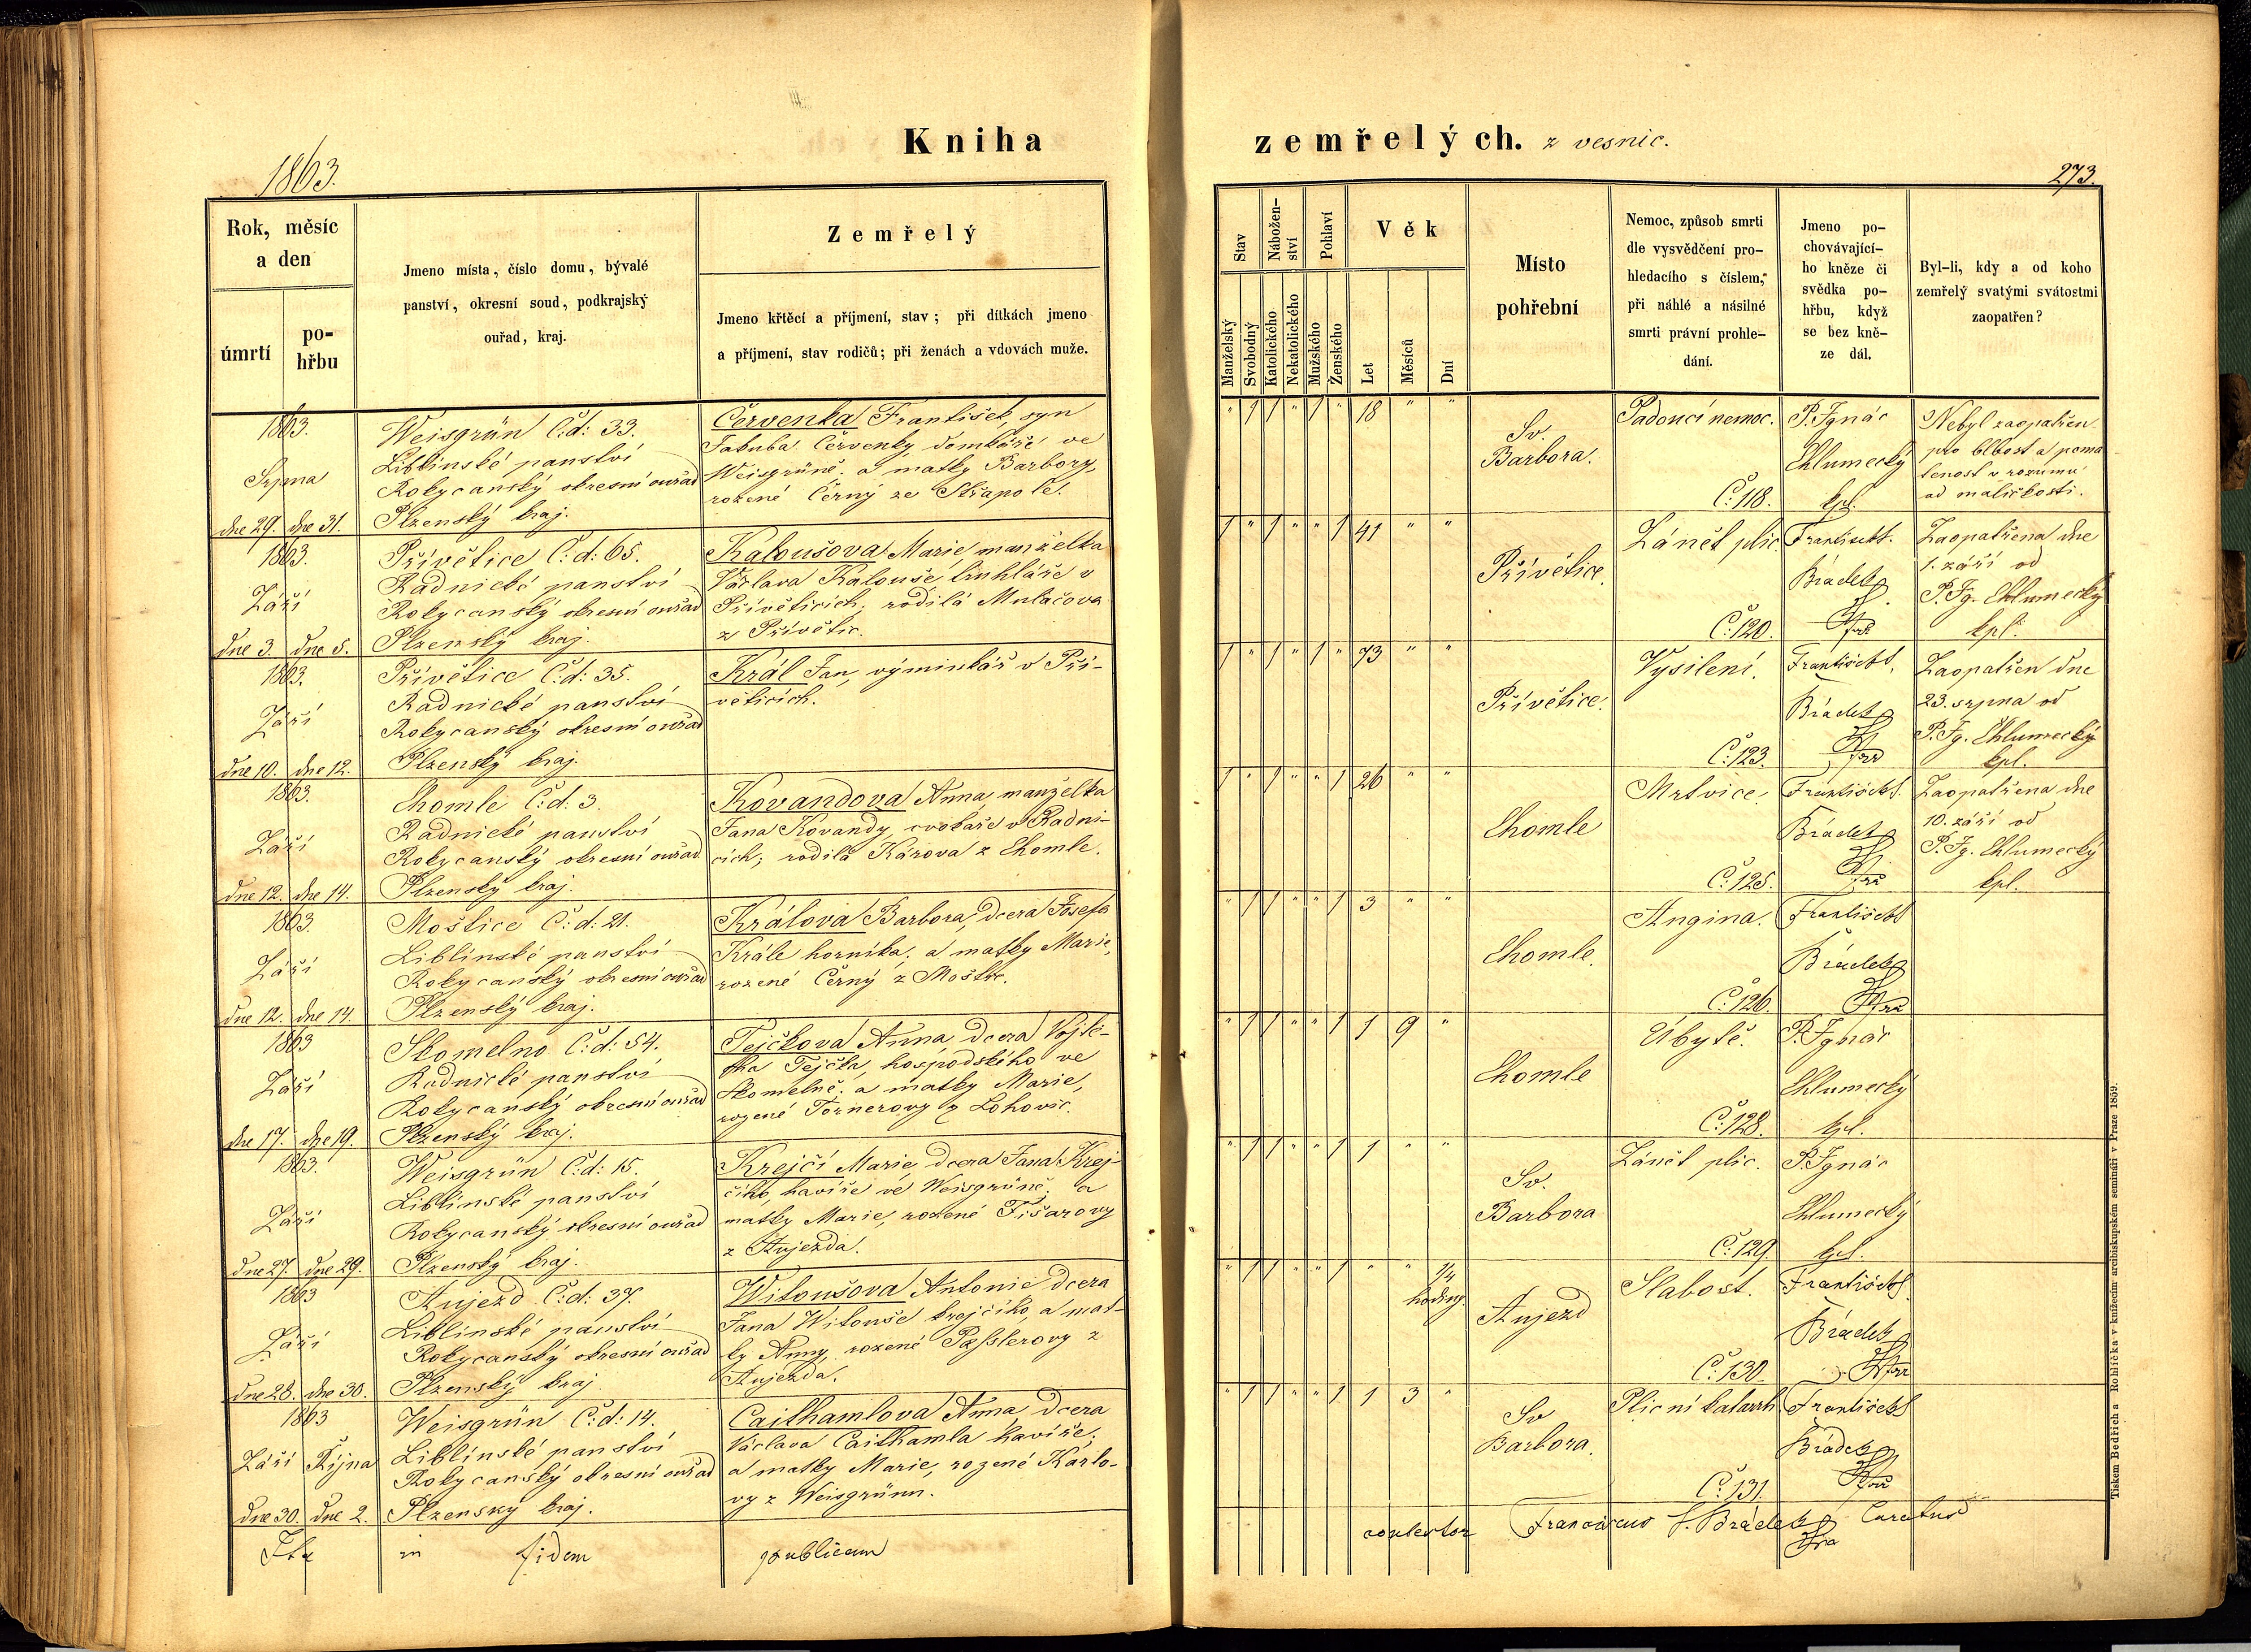 1863.
Kniha
zemřelých. z vesnic.
273.
Rok, měsíc
a den
úmrtí
po-
hřbu
Jmeno místa, číslo domu, bývalé
panství, okresní soud, podkrajský
ouřad, kraj.
Zemřelý
Jmeno křtěcí a příjmení, stav; při dítkách jmeno
a příjmení, stav rodičů; při ženách a vdovách muže.
Stav
Nábožen-
ství
Pohlaví
Věk
Manželský
Svobodný
Katolického
Nekatolického
Mužského
Ženského
Let
Měsíců
Dní
Místo
pohřební
Nemoc, způsob smrti
dle vysvědčení pro-
hledacího s číslem,
při náhlé a násilné
smrti právní prohle-
dání.
Jmeno po-
chovávající-
ho kněze či
svědka po-
hřbu, když
se bez kně-
ze dál.
Byl-li, kdy a od koho
zemřelý svatými svátostmi
zaopatřen?
1863.
Srpna
dne 29. dne 31.
Weisgrün Č:d: 33.
Liblinské panství
Rokycanský okresní ouřad
Plzenský kraj.
Červenka František, syn
Jakuba Červenky, domkáře ve
Weisgrüně. a matky Barbory,
rozené Černý ze Střapole.
" 1 1 " 1 " 18 " "
Sv.
Barbora.
Padoucí nemoc.
Č. 118.
P. Ignác
Chlumecký
kpl.
Nebyl zaopatřen
pro blbost a poma
lenost v rozumu
od maličkosti.
1863.
Září
dne 3. dne 5.
Přívětice Č:d: 65.
Radnické panství
Rokycanský okresní ouřad
Plzenský kraj.
Kaloušova Marie, manželka
Václava Kalouše truhláře v
Příveticích; rodilá Mulačova
z Přívětic.
1 " 1 " " 1 41 " "
Přívětice.
Zánět plic.
Č. 120.
František
Brádek
Zaopatřena dne
1. září od
P. Ig. Chlumecký
kpl.
1863.
Září
dne 10. dne 12.
Přívětice Č:d: 35.
Radnické panství
Rokycanský okresní ouřad
Plzenský kraj.
Král Jan, výminkář v Pří-
věticích.
1 " 1 " 1 " 73 " "
Přívětice.
Vysílení.
Č. 123.
František
Brádek
Zaopatřen dne
23. srpna od
P. Ig. Chlumecký
kpl.
1863.
Září
dne 12. dne 14.
Chomle Č:d: 3.
Radnické panství
Rokycanský okresní ouřad
Plzenský kraj.
Kovandova Anna, manželka
Jana Kovandy, cvokaře v Radni-
cích; rodilá Károva z Chomle.
1 " 1 " " 1 26 " "
Chomle
Mrtvice.
Č. 125.
František
Brádek
Zaopatřena dne
10. září od
P. Ig. Chlumecký
kpl.
1863.
Září
dne 12. dne 14.
Moštice Č:d: 21.
Liblinské panství
Rokycanský okresní ouřad
Plzenský kraj.
Králova Barbora, dcera Josefa
Krále horníka; a matky Marie,
rozené Černý z Moštic.
" 1 1 " " 1 3 " "
Chomle.
Angina.
Č. 126.
František
Brádek
1863
Září
dne 17. dne 19.
Skomelno Č:d: 54.
Radnické panství
Rokycanský okresní ouřad
Plzenský kraj.
Tejčkova Anna dcera Vojtě-
cha Tejčka, hospodského ve
Skomelně. a matky Marie,
rozené Tornerovy z Lohovic.
" 1 1 " " 1 1 9 "
Chomle
Úbytě.
Č. 128.
P. Ignác
Chlumecký
kpl.
1863.
Září
dne 27. dne 29.
Weisgrün Č:d: 15.
Liblinské panství
Rokycanský okresní ouřad
Plzenský kraj.
Krejčí Marie dcera Jana Krej-
čího, havíře ve Weisgrüně; a
matky Marie, rozené Fišarovy
z Aujezda.
" 1 1 " " 1 1 " "
Sv.
Barbora
Zánět plic.
Č. 129.
P. Ignác
Chlumecký
kpl.
1863
Září
dne 28. dne 30.
Aujezd Č:d: 37.
Liblinské panství
Rokycanský okresní ouřad
Plzenský kraj
Witoušova Antonie dcera
Jana Witouše krejčího, a mat-
ky Anny, rozené Paßlerovy z
Aujezda.
" 1 1 " " 1 " " 1/4
hodiny.
Aujezd
Slabost.
Č. 130.
František
Brádek
1863
Září Října
dne 30. dne 2.
Weisgrün Č:d: 14.
Liblinské panství
Rokycanský okresní ouřad
Plzenský kraj.
Caithamlova Anna dcera
Václava Caithamla havíře;
a matky Marie, rozené Kárlo-
vy z Weisgrünn.
" 1 1 " " 1 1 3 "
Sv
Barbora.
Plicní katarrh.
Č. 131.
František
Brádek
Ita in fidem publicam
Franciscus J. Brádek Curatus
Tiskem Bedřicha Rohlíčka v knížecím arcibiskupském semináři v Praze 1859.